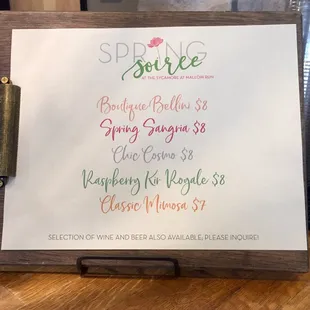 SPRING
soirée
AT THE SYCAMORE AT MALLOW RUN
Boutique Bellini $8
Spring Sangria $8
Chic Cosmo $8
Raspberry Kir Royale $8
Classic Mimosa $7
SELECTION OF WINE AND BEER ALSO AVAILABLE, PLEASE INQUIRE!